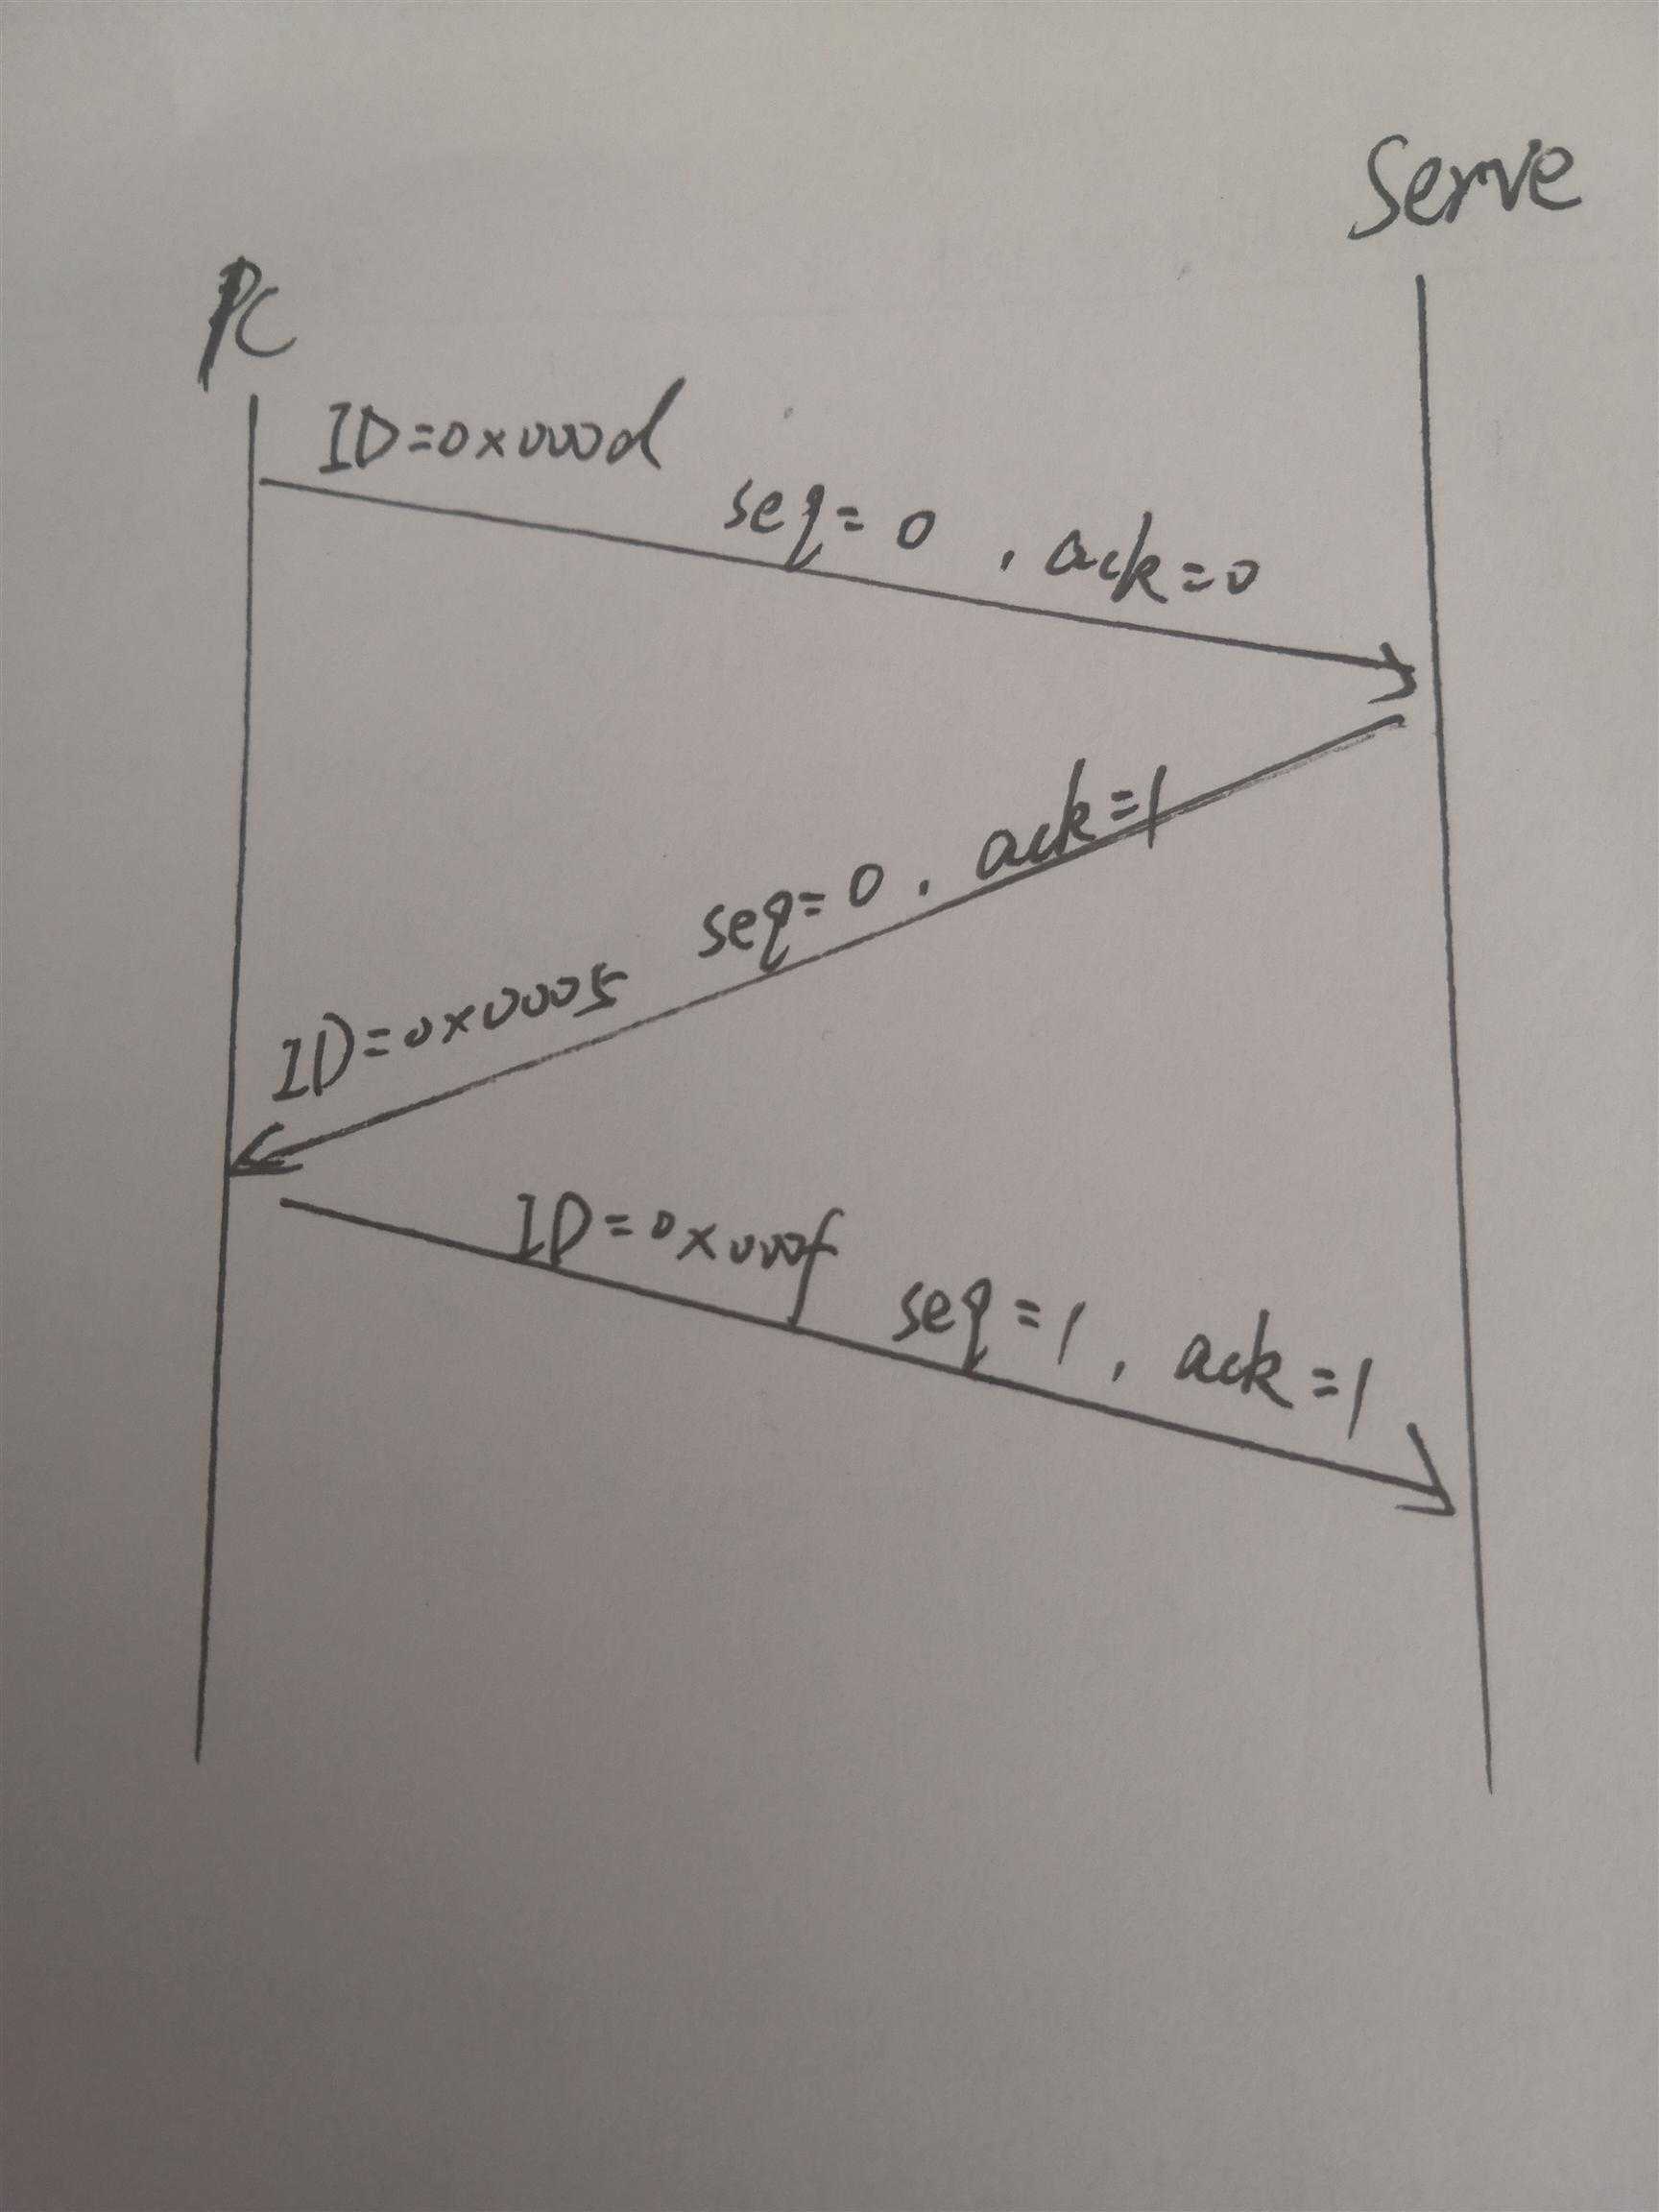 Serve
PC
ID=0x000d
seq=0 , ack=0
seq=0 . ack=1
ID=0x0005
ID=0x000f
seq=1 , ack=1